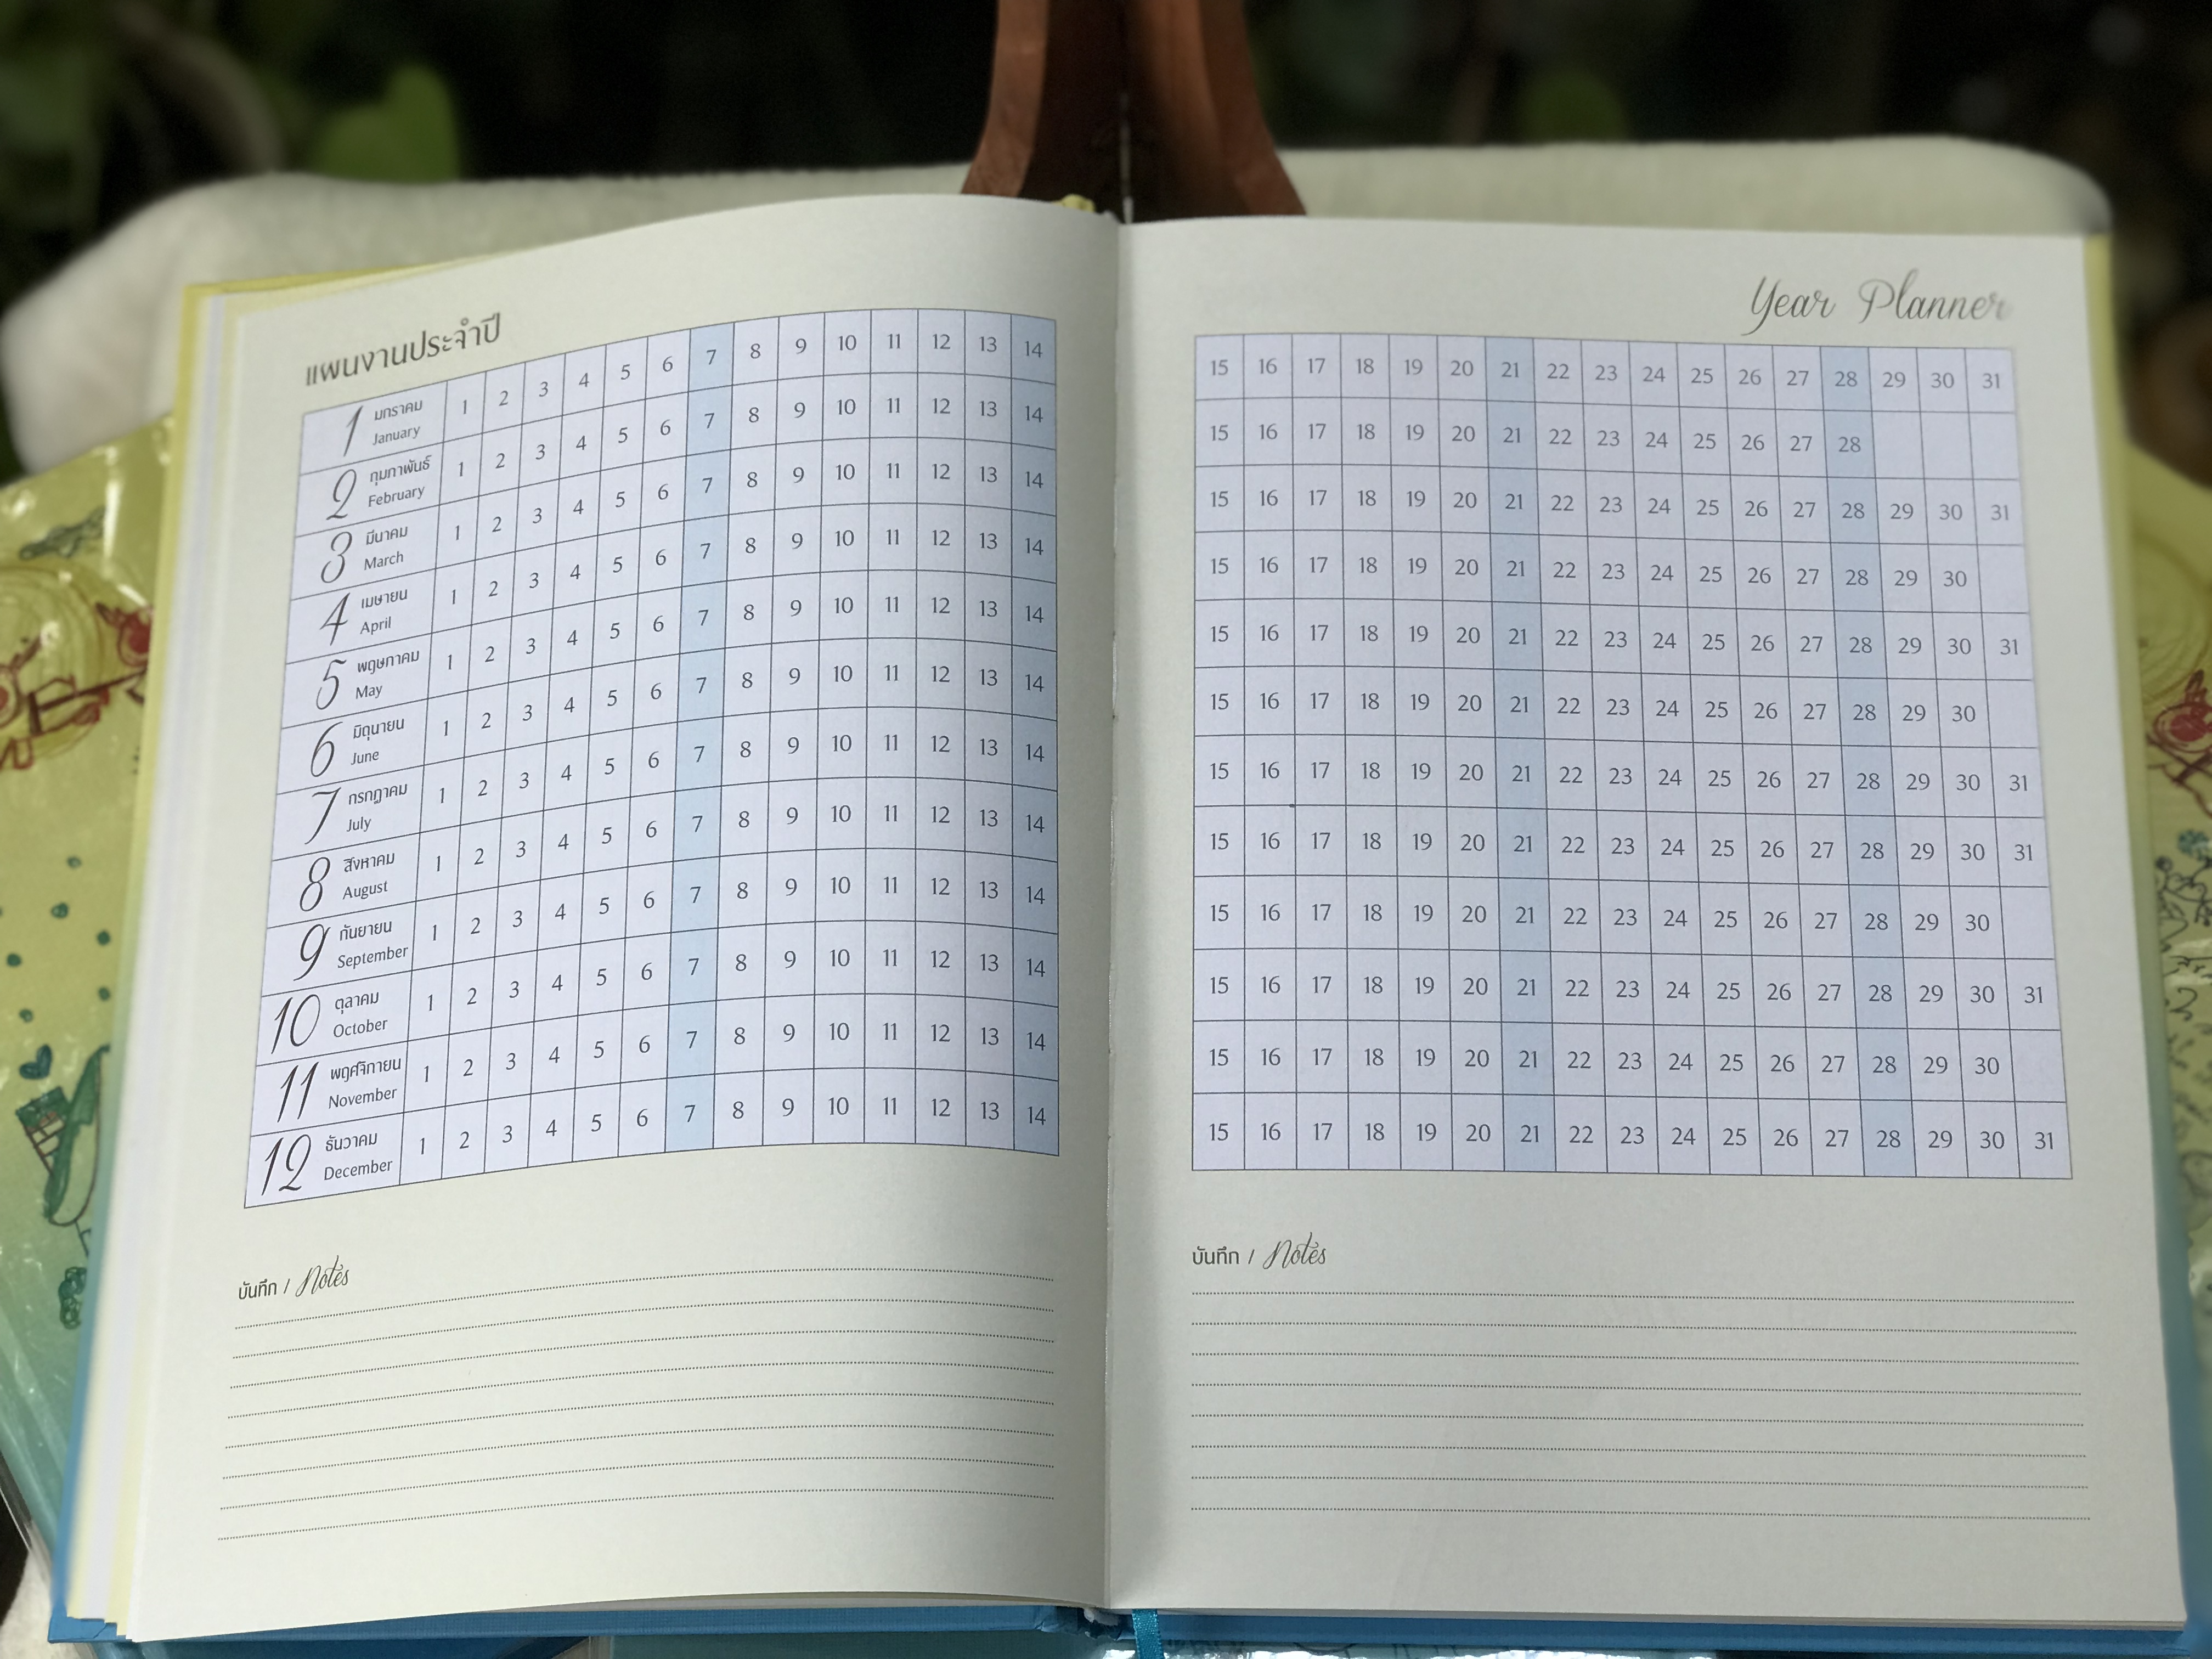 แผนงานประจำปี
1 มกราคม January 1 2 3 4 5 6 7 8 9 10 11 12 13 14
2 กุมภาพันธ์ February 1 2 3 4 5 6 7 8 9 10 11 12 13 14
3 มีนาคม March 1 2 3 4 5 6 7 8 9 10 11 12 13 14
4 เมษายน April 1 2 3 4 5 6 7 8 9 10 11 12 13 14
5 พฤษภาคม May 1 2 3 4 5 6 7 8 9 10 11 12 13 14
6 มิถุนายน June 1 2 3 4 5 6 7 8 9 10 11 12 13 14
7 กรกฎาคม July 1 2 3 4 5 6 7 8 9 10 11 12 13 14
8 สิงหาคม August 1 2 3 4 5 6 7 8 9 10 11 12 13 14
9 กันยายน September 1 2 3 4 5 6 7 8 9 10 11 12 13 14
10 ตุลาคม October 1 2 3 4 5 6 7 8 9 10 11 12 13 14
11 พฤศจิกายน November 1 2 3 4 5 6 7 8 9 10 11 12 13 14
12 ธันวาคม December 1 2 3 4 5 6 7 8 9 10 11 12 13 14
บันทึก / Notes
Year Planner
15 16 17 18 19 20 21 22 23 24 25 26 27 28 29 30 31
15 16 17 18 19 20 21 22 23 24 25 26 27 28
15 16 17 18 19 20 21 22 23 24 25 26 27 28 29 30 31
15 16 17 18 19 20 21 22 23 24 25 26 27 28 29 30
15 16 17 18 19 20 21 22 23 24 25 26 27 28 29 30 31
15 16 17 18 19 20 21 22 23 24 25 26 27 28 29 30
15 16 17 18 19 20 21 22 23 24 25 26 27 28 29 30 31
15 16 17 18 19 20 21 22 23 24 25 26 27 28 29 30 31
15 16 17 18 19 20 21 22 23 24 25 26 27 28 29 30
15 16 17 18 19 20 21 22 23 24 25 26 27 28 29 30 31
15 16 17 18 19 20 21 22 23 24 25 26 27 28 29 30
15 16 17 18 19 20 21 22 23 24 25 26 27 28 29 30 31
บันทึก / Notes